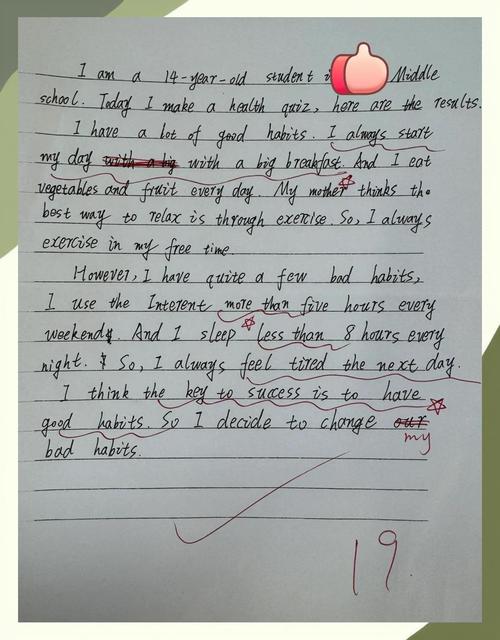 I am a 14-year-old student i Middle
school. Today I make a health quiz, here are the results.
I have a lot of good habits. I always start
my day with a big with a big breakfast. And I eat
vegetables and fruit every day. My mother thinks the
best way to relax is through exercise. So, I always
exercise in my free time.
However, I have quite a few bad habits,
I use the Interent more than five hours every
weekendy. And I sleep less than 8 hours every
night. So, I always feel tired the next day.
I think the key to success is to have
good habits. So I decide to change our
my
bad habits.
19.